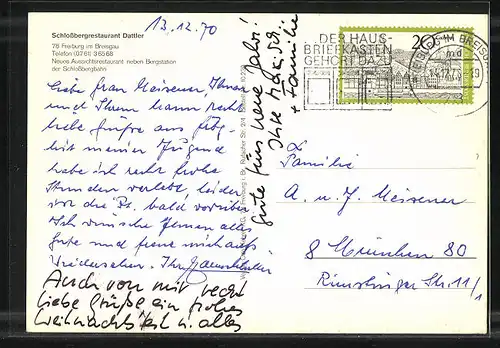 Schloßbergrestaurant Dattler
78 Freiburg im Breisgau
Telefon (0761) 3 65 68
Neues Aussichtsrestaurant neben Bergstation
der Schloßbergbahn
13.12.70
DER HAUS-
BRIEFKASTEN
GEHÖRT DAZU
20
FREIBURG IM BREISGAU
Liebe Frau Meixener, Ihnen
und Ihrem Mann recht
liebe Grüße aus
mit meiner Jugend
habe ich recht frohe
Stunden verlebt, leider
vor die bald vorüber
Ich wünsche Ihnen alles
Gute und freue mich aufs
Wiedersehen. Ihr
Auch von mir recht
liebe Grüße ein frohes
Weihnachtsfest u. alles
Gute fürs neue Jahr!
Ihre
+ Familie
Familie
A. u. J. Meixener
8 München 80
Str. 11/1